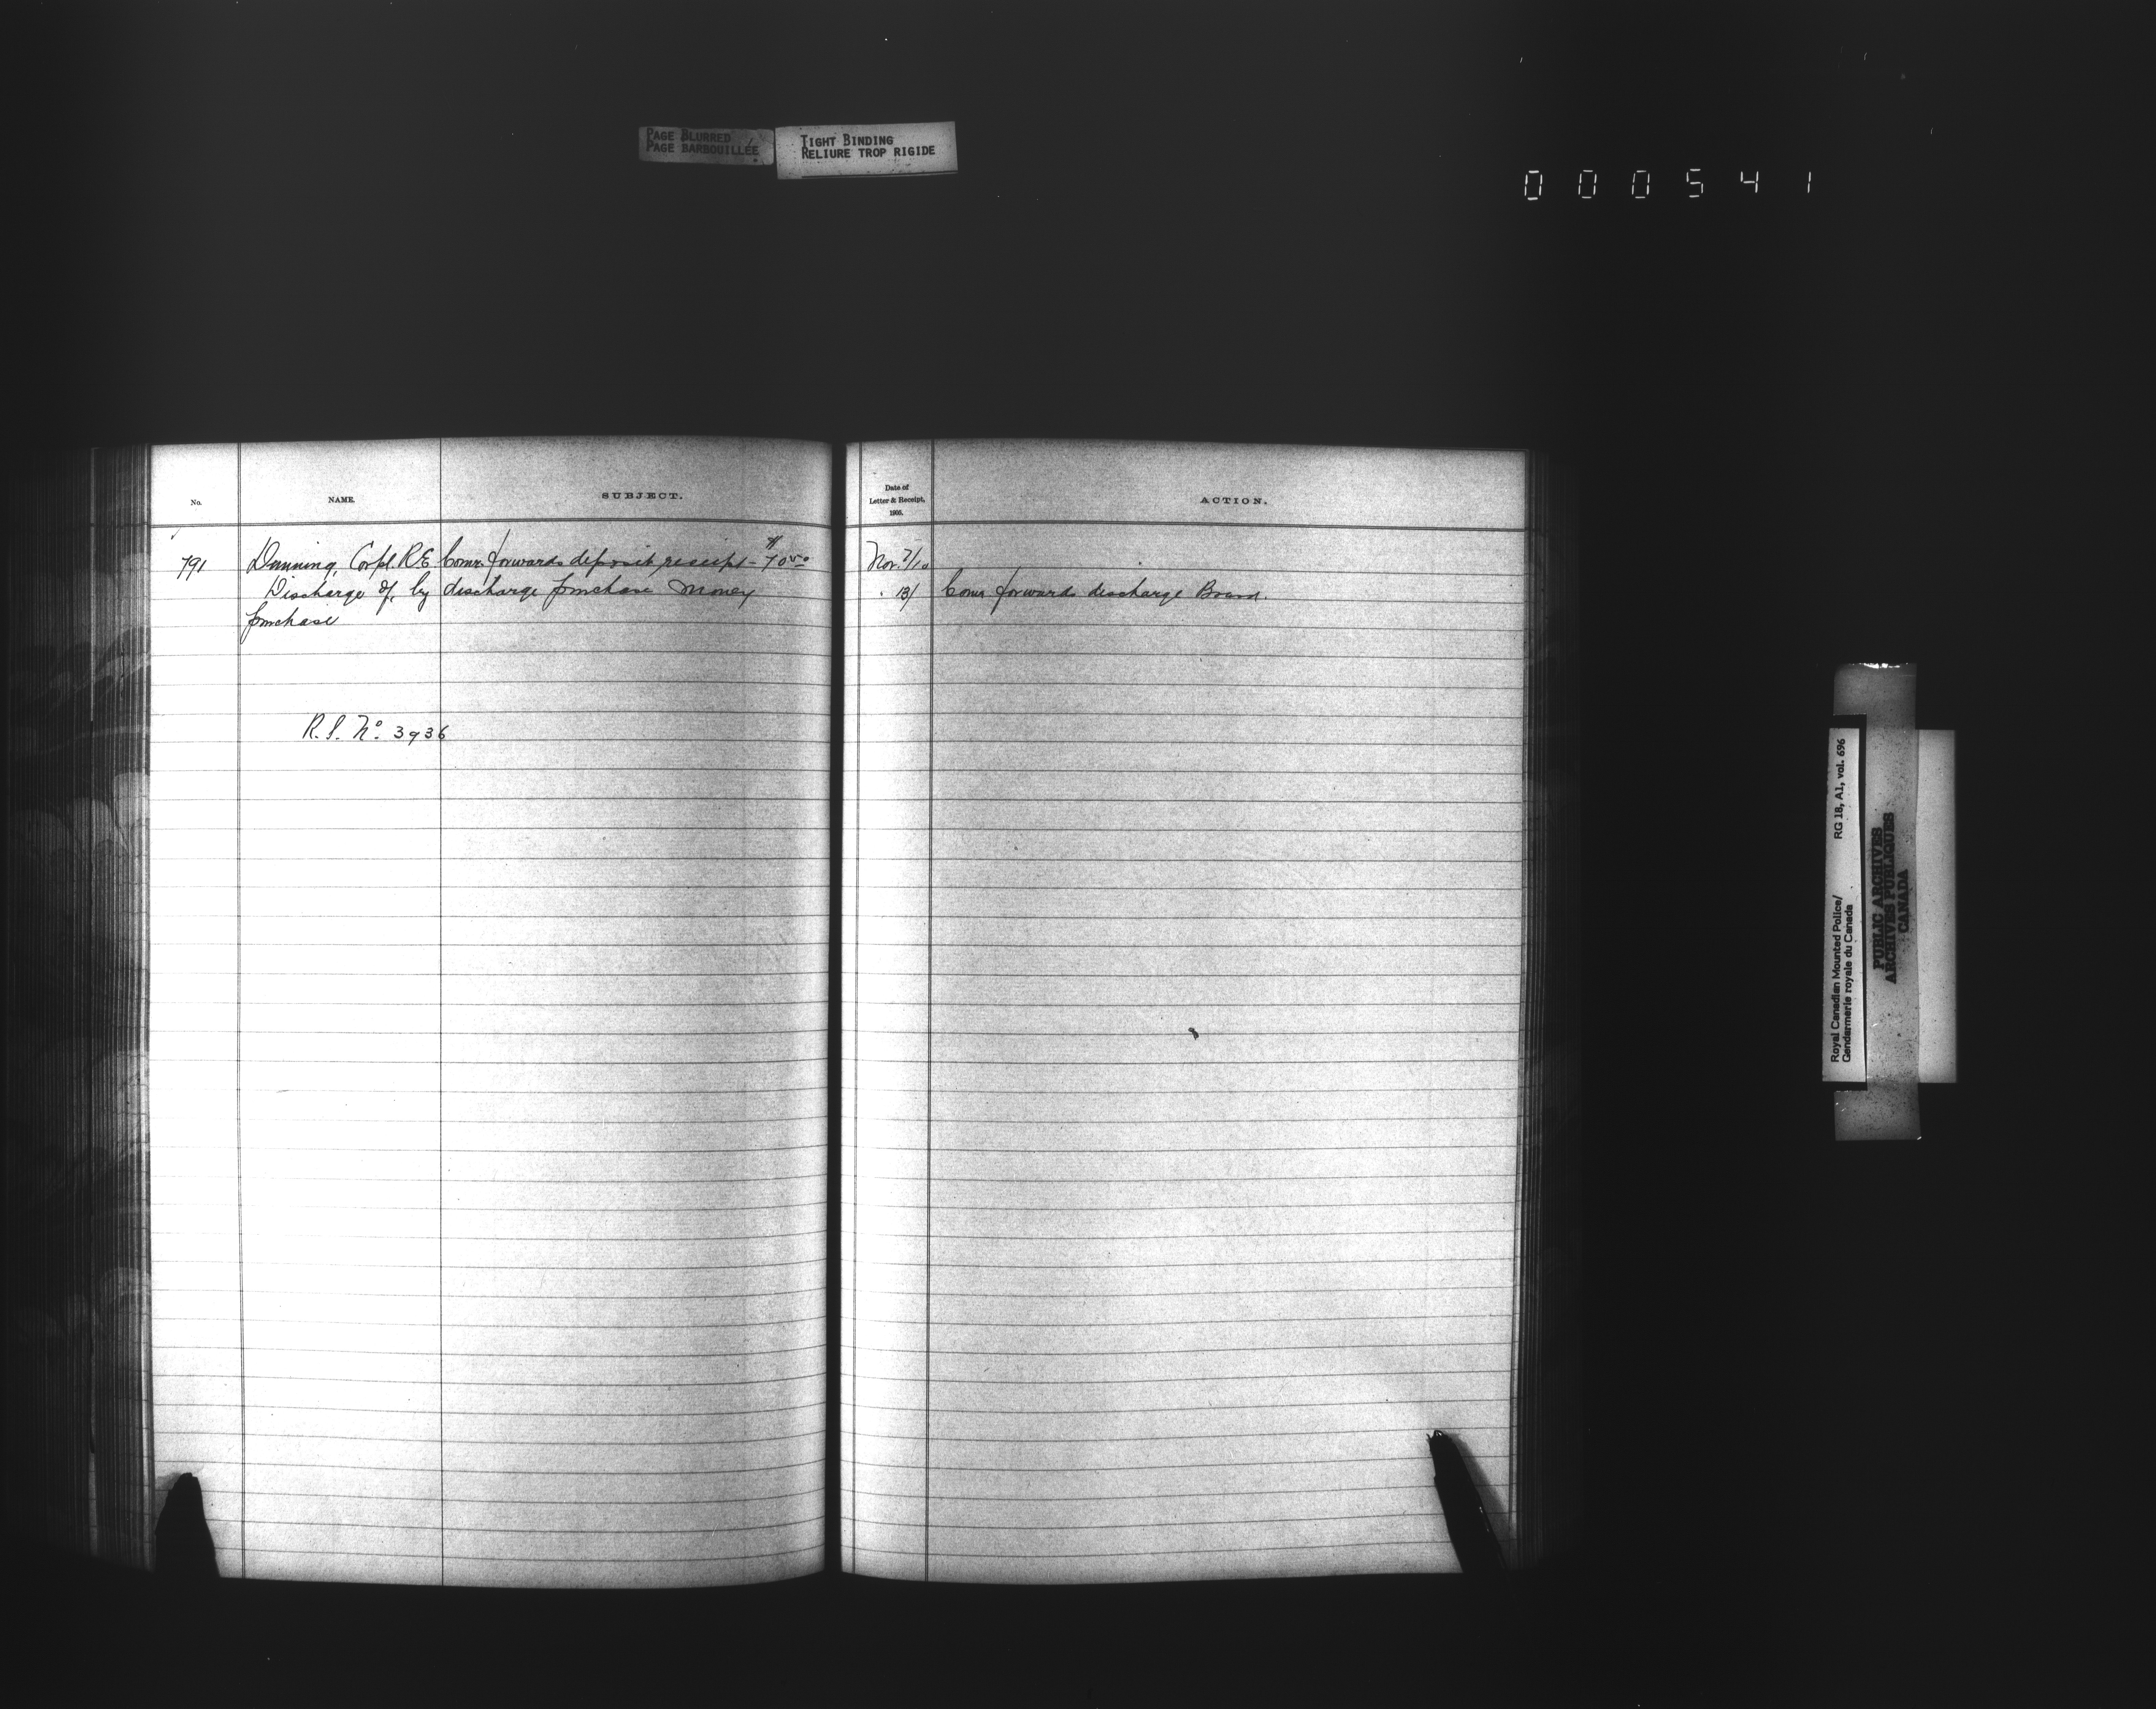 PAGE BLURRED
PAGE BARBOUILLÉE
TIGHT BINDING
RELIURE TROP RIGIDE
000541
No.
NAME.
SUBJECT.
Date of
Letter & Receipt,
1905.
ACTION.
791
Dunning, Corpl. R.E.
Discharge of, by
purchase
Comr. forwards deposit receipt - $70.50
discharge purchase money
R.S. No. 3936
Nov. 7/10
" 13/
Comr. forwards discharge Board.
Royal Canadian Mounted Police/
Gendarmerie royale du Canada
RG 18, A1, vol. 696
PUBLIC ARCHIVES
ARCHIVES PUBLIQUES
CANADA